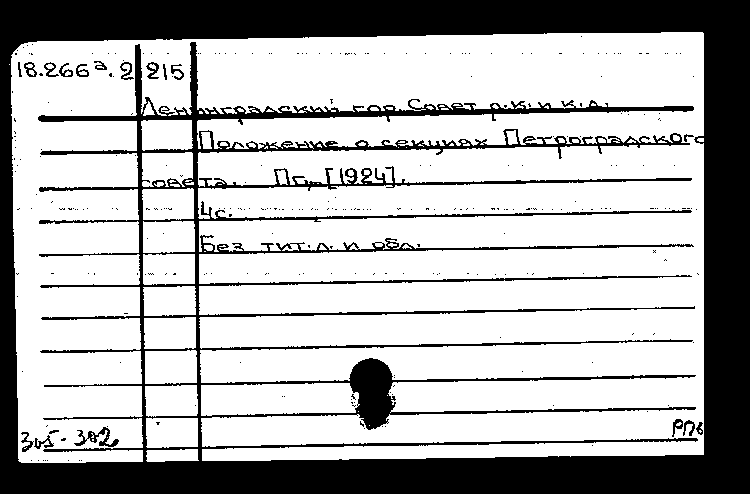 18.266ª.2 215
Ленинградский гор. Совет р.К. и к.д.
Положение о секциях Петроградского
совета. Пг., [1924].
4с.
Без тит.л. и обл.
305-302
РПб